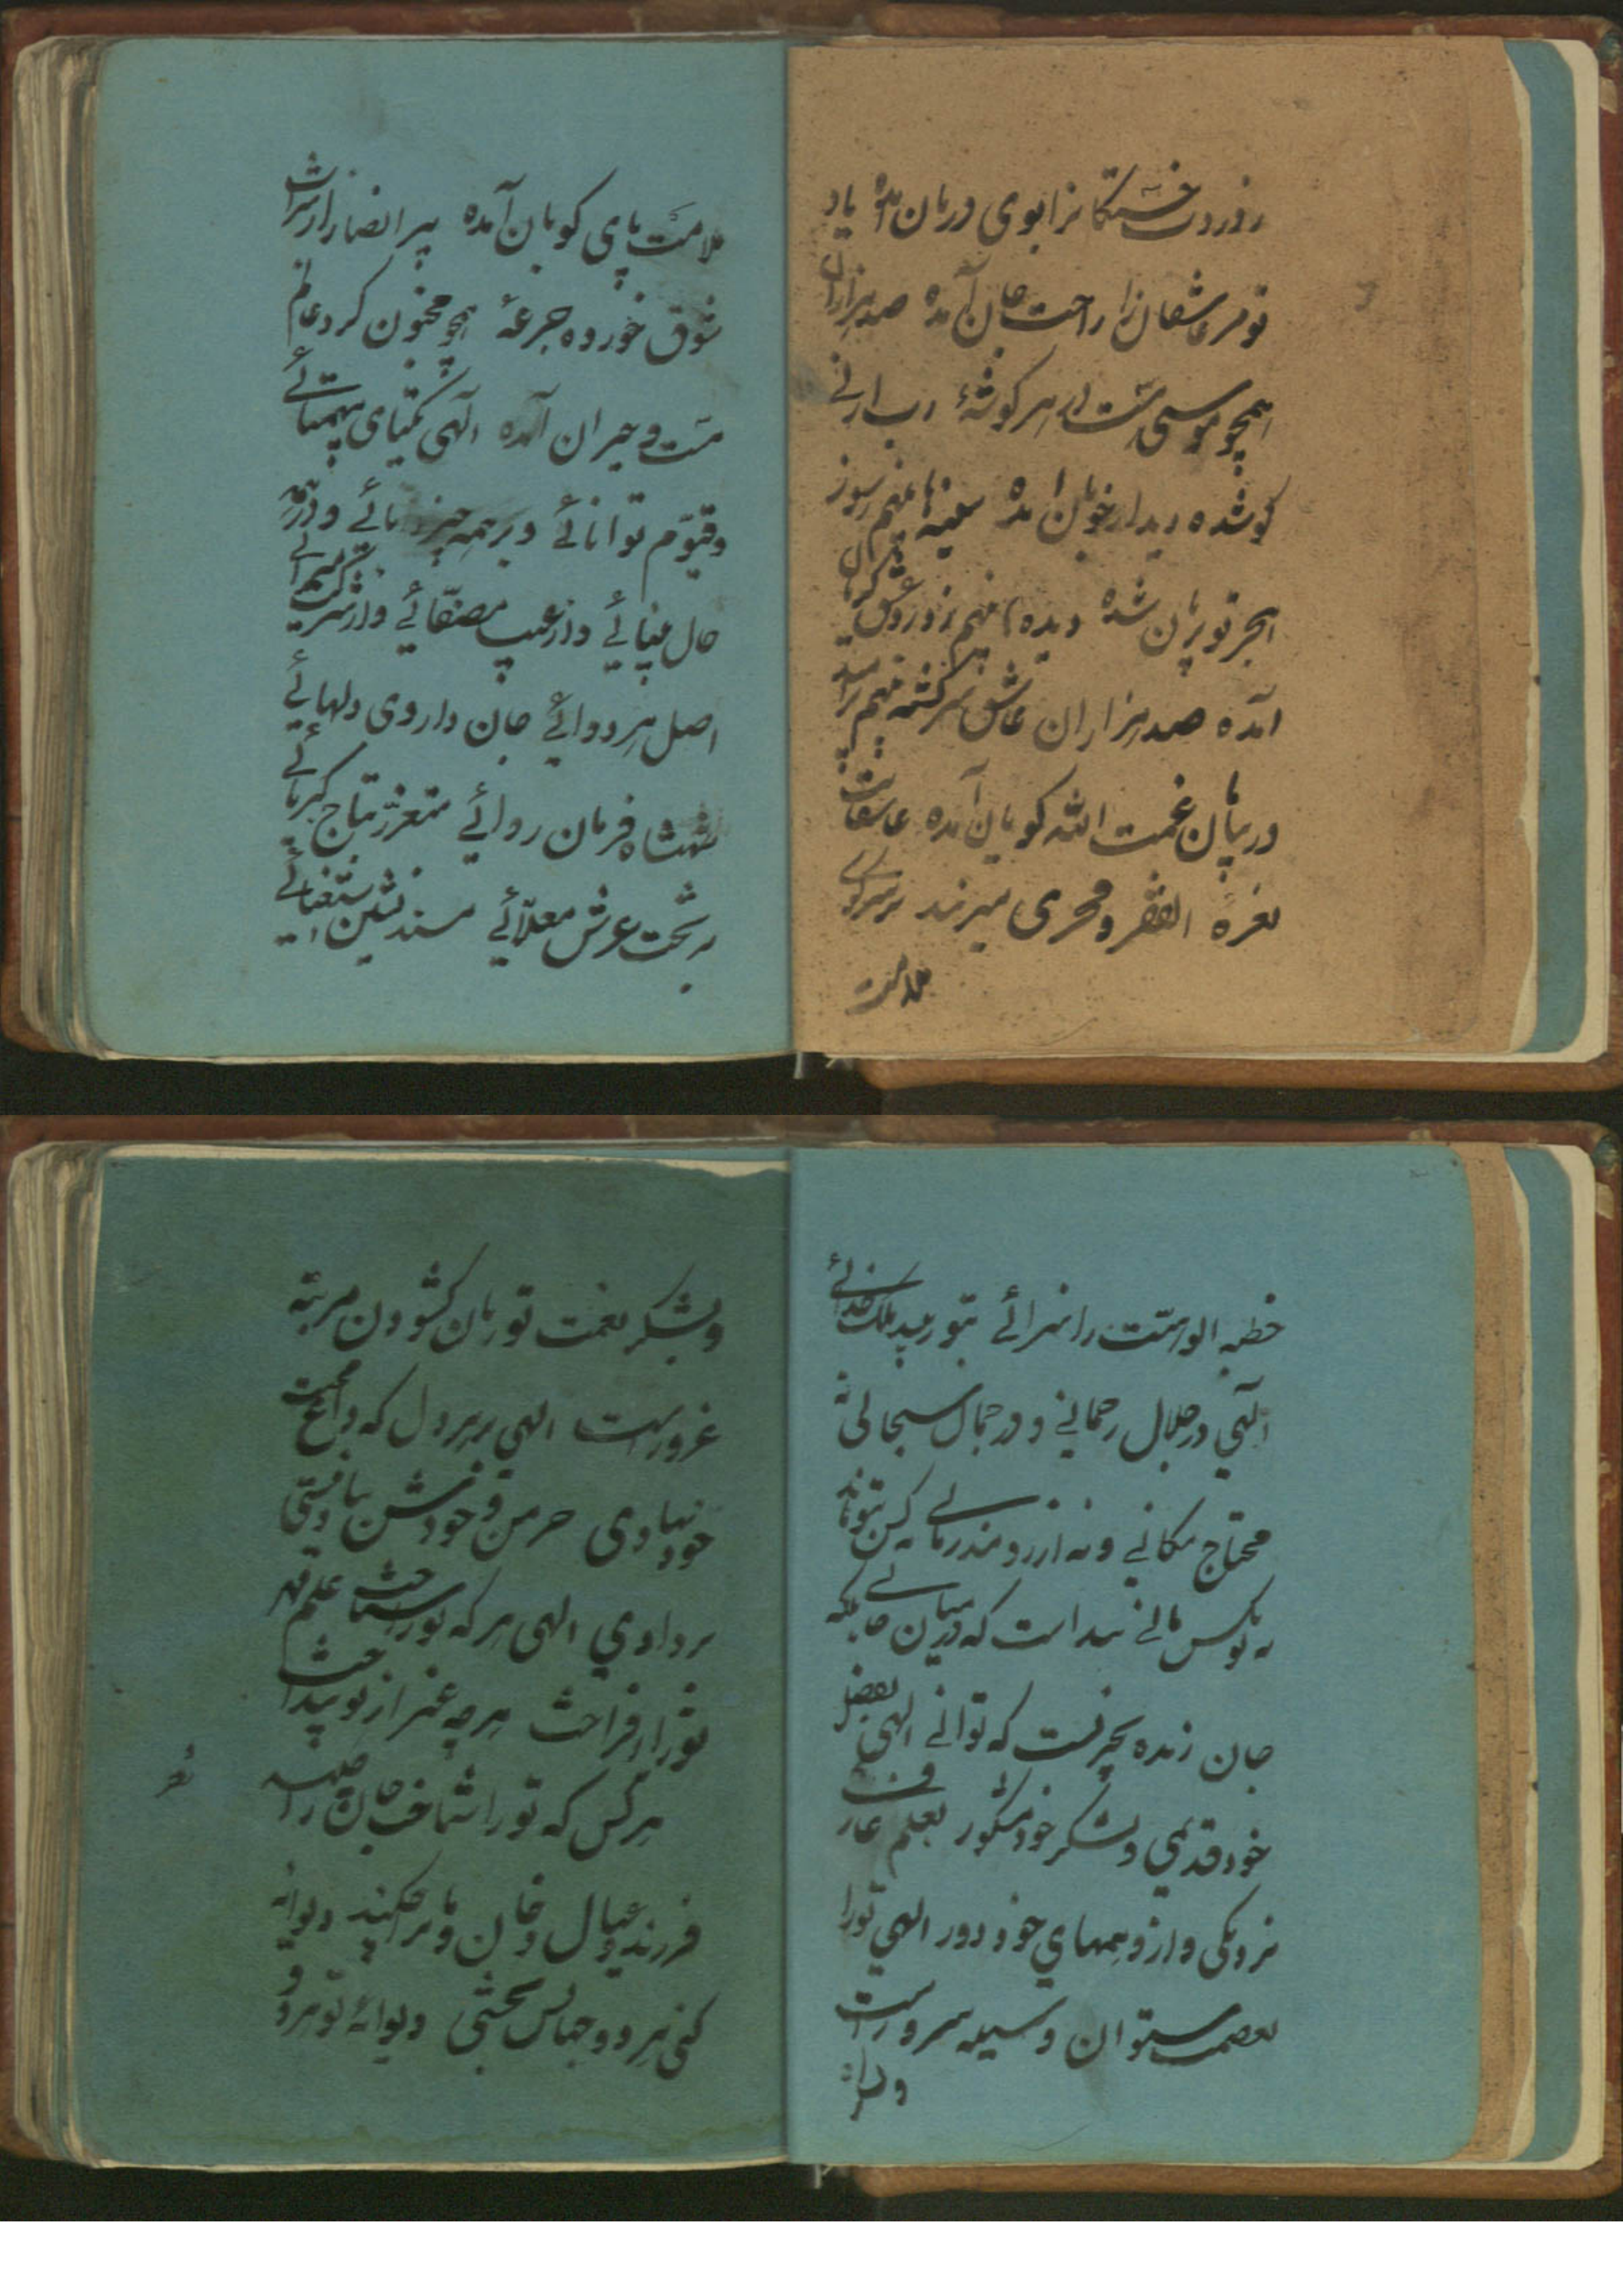 ز دردت خستگانرا بوی درمان آمده یاد
تو مر عاشقان را راحت جان آمده صد هزاران
همچو موسی مست در هر گوشهٔ رب ارنی
گو شده دیدار جویان آمده سینها بینم ز سوز
هجر تو بریان شده دیدها بینم ز درد عشق گریان
آمده صد هزاران عاشق سرگشته بینم بر امید
در بیابان غمت الله گویان آمده عاشقانت
نعره الفقر و فخری میزنند بر سر کوی
ملامت
ملامت پای کوبان آمده پیر انصار از شراب
شوق خورده جرعهٔ همچو مجنون گرد عالم
مست و حیران آمده الهی یکتای بیهمتائے
و قیّوم توانائے و بر همه چیز دانائے و در همه
حال بینائے و از عیب مصفّائے و از شرک مبرائے
اصل هر دوائے جان داروی دلهائے
شهنشاه فرمان روائے متعزز بتاج کبریائے
به تخت عرش معلّائے مسند نشین استغنائے
خطبه الوهیّت را سزائے بتو رسد ملک خدائے
الهی در جلال رحمانے و در جمال سبحانی نه
محتاج مکانے و نه آرزومند زمانے کس بتو نماند
نه تو بکس مانے پیداست که در میان جانے بلکه
جان زنده بچیزیست که تو آنے الهی بفضل
خود قدیمی و بشکر خود مشکور بعلم عارف
نزدیکی و از وهمهای خود دور الهی تو را
بعصمت ستوان وسیله سرور است
و بشکر
و بشکر نعمت تو زبان گشودن مرتبه
غرور است الهی بر هر دل که داغ محبت
خود نهادی خرمن وجودش بباد نیستی
بر دادی الهی هر که تو را شناخت علم قهر
تو را افراخت هر چه غیر از تو بینداخت شعر
هر کس که تو را شناخت جان را چه کند
فرزند و عیال و خان و مان را چکند دیوانه
کنی هر دو جهانش بخشی دیوانهٔ تو هر دو